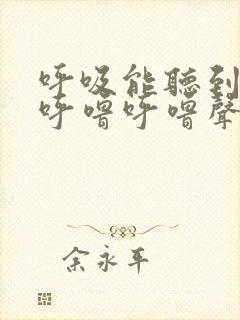 呼吸能聽到
呼嚕呼嚕聲
余永平